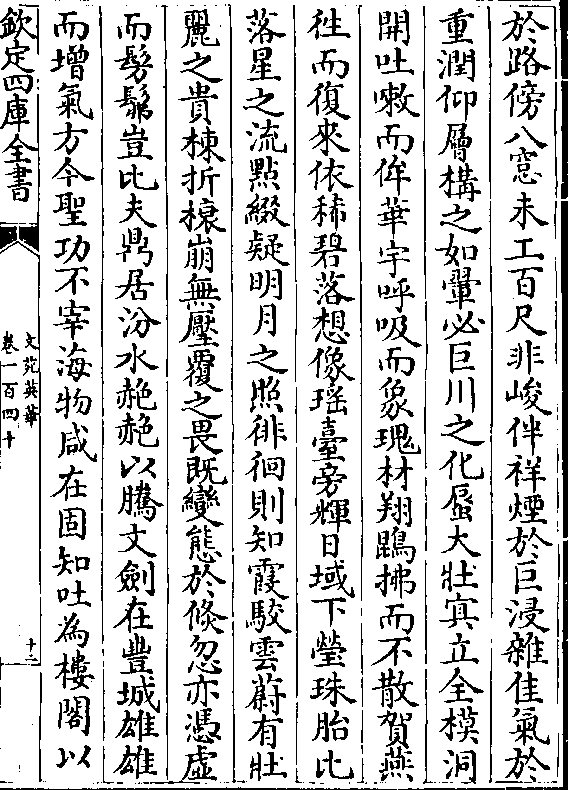 於路傍八窓未工百尺非峻伴祥煙於巨浸雜佳氣於
重潤仰層構之如翬必巨川之化蜃大壯寘立全模洞
開吐嗽而侔華宇呼吸而象瑰材翔鶂拂而不散賀燕
徃而復來依稀碧落想像瑶臺旁輝日域下瑩珠胎比
落星之流點綴疑明月之照徘徊則知霞駮雲蔚有壯
麗之貴棟折榱崩無壓覆之畏既變態於倐忽亦憑虛
而髣髴豈比夫鼎居汾水赩赩以騰文劍在豐城雄雄
而增氣方今聖功不宰海物咸在固知吐為樓閣以
欽定四庫全書
文苑英華
卷一百四十
十二